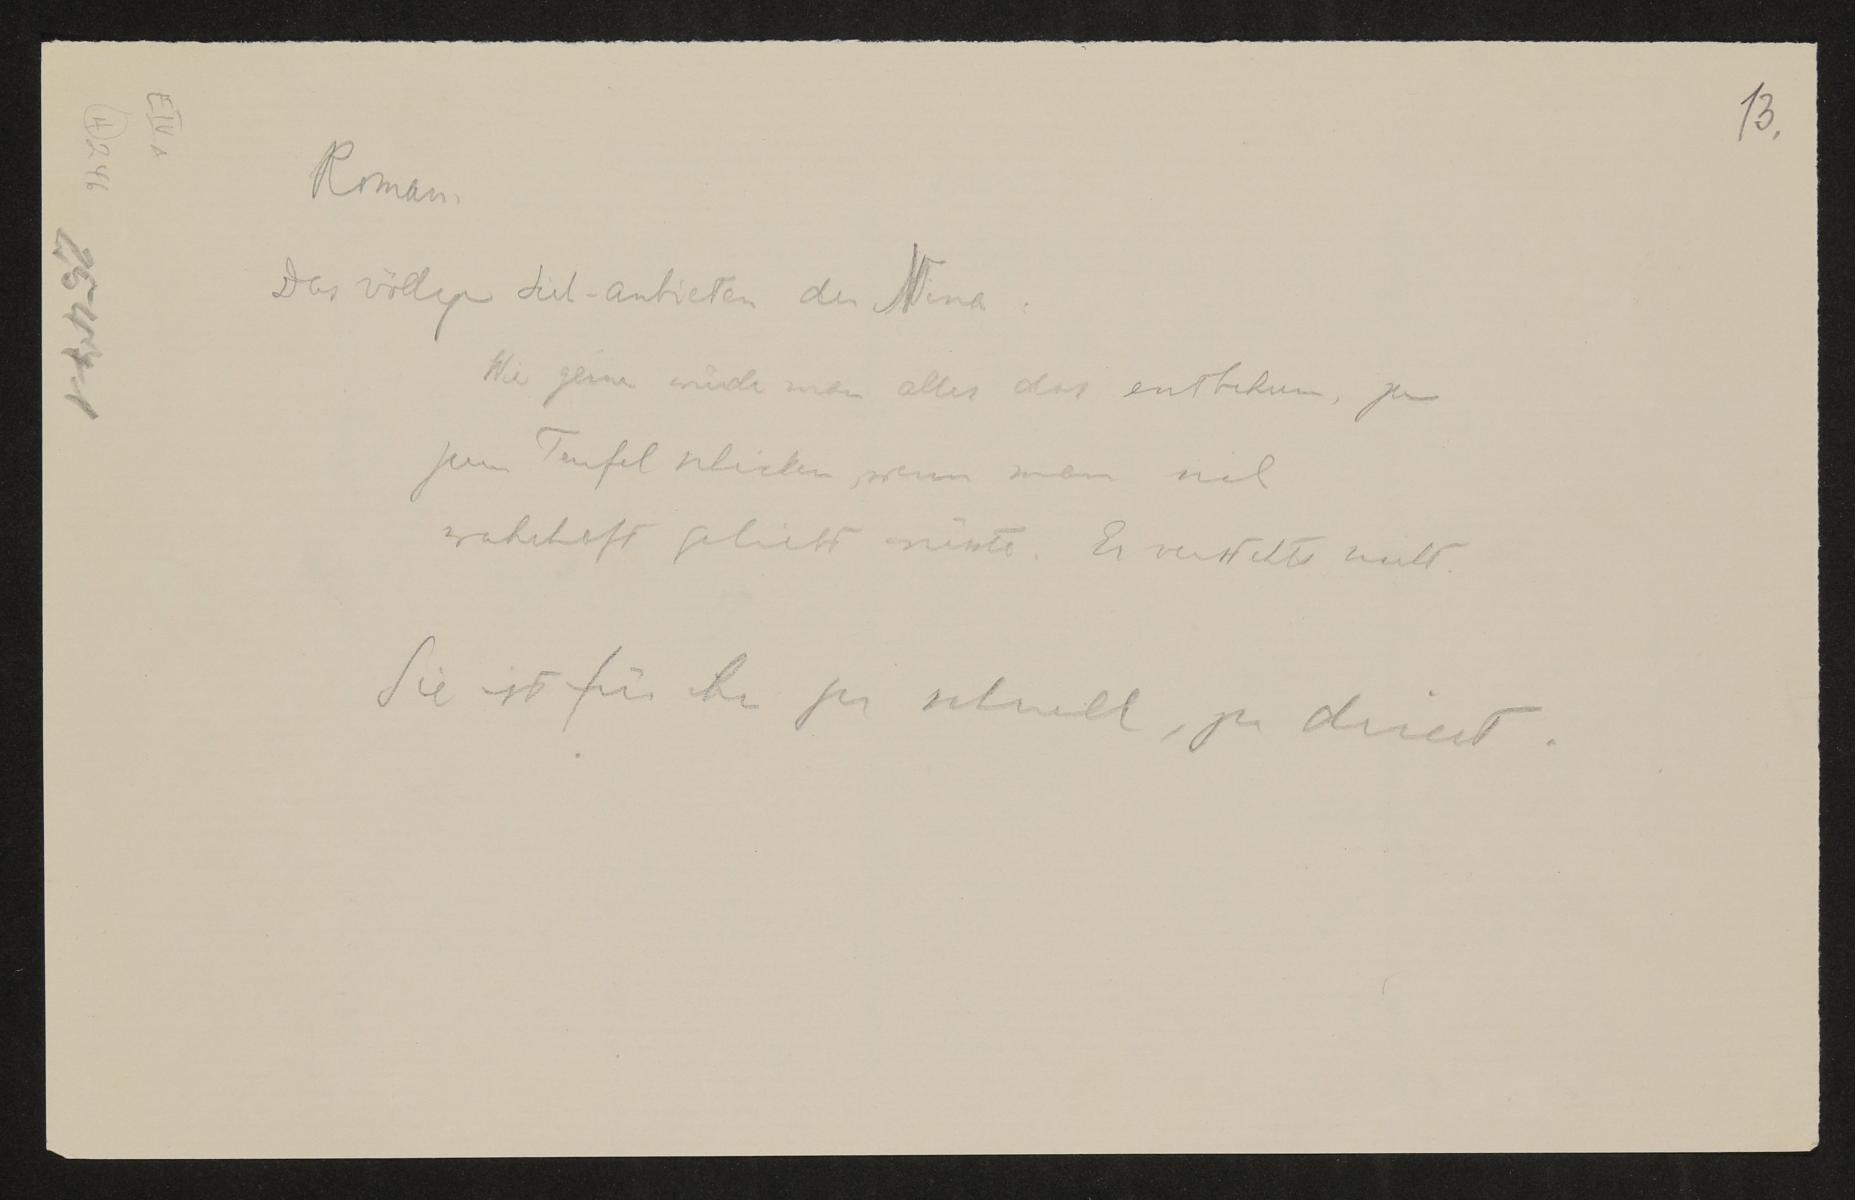 13.
E IV A
H 246
Roman.
Das völlige Sich-anbieten der Nina.
Wie gerne würde man alles das entbehren, ja
zum Teufel schicken, wenn man sich
wahrhaft geliebt wüsste. Er versteht's nicht.
Sie ist für ihn zu schnell, zu direct.